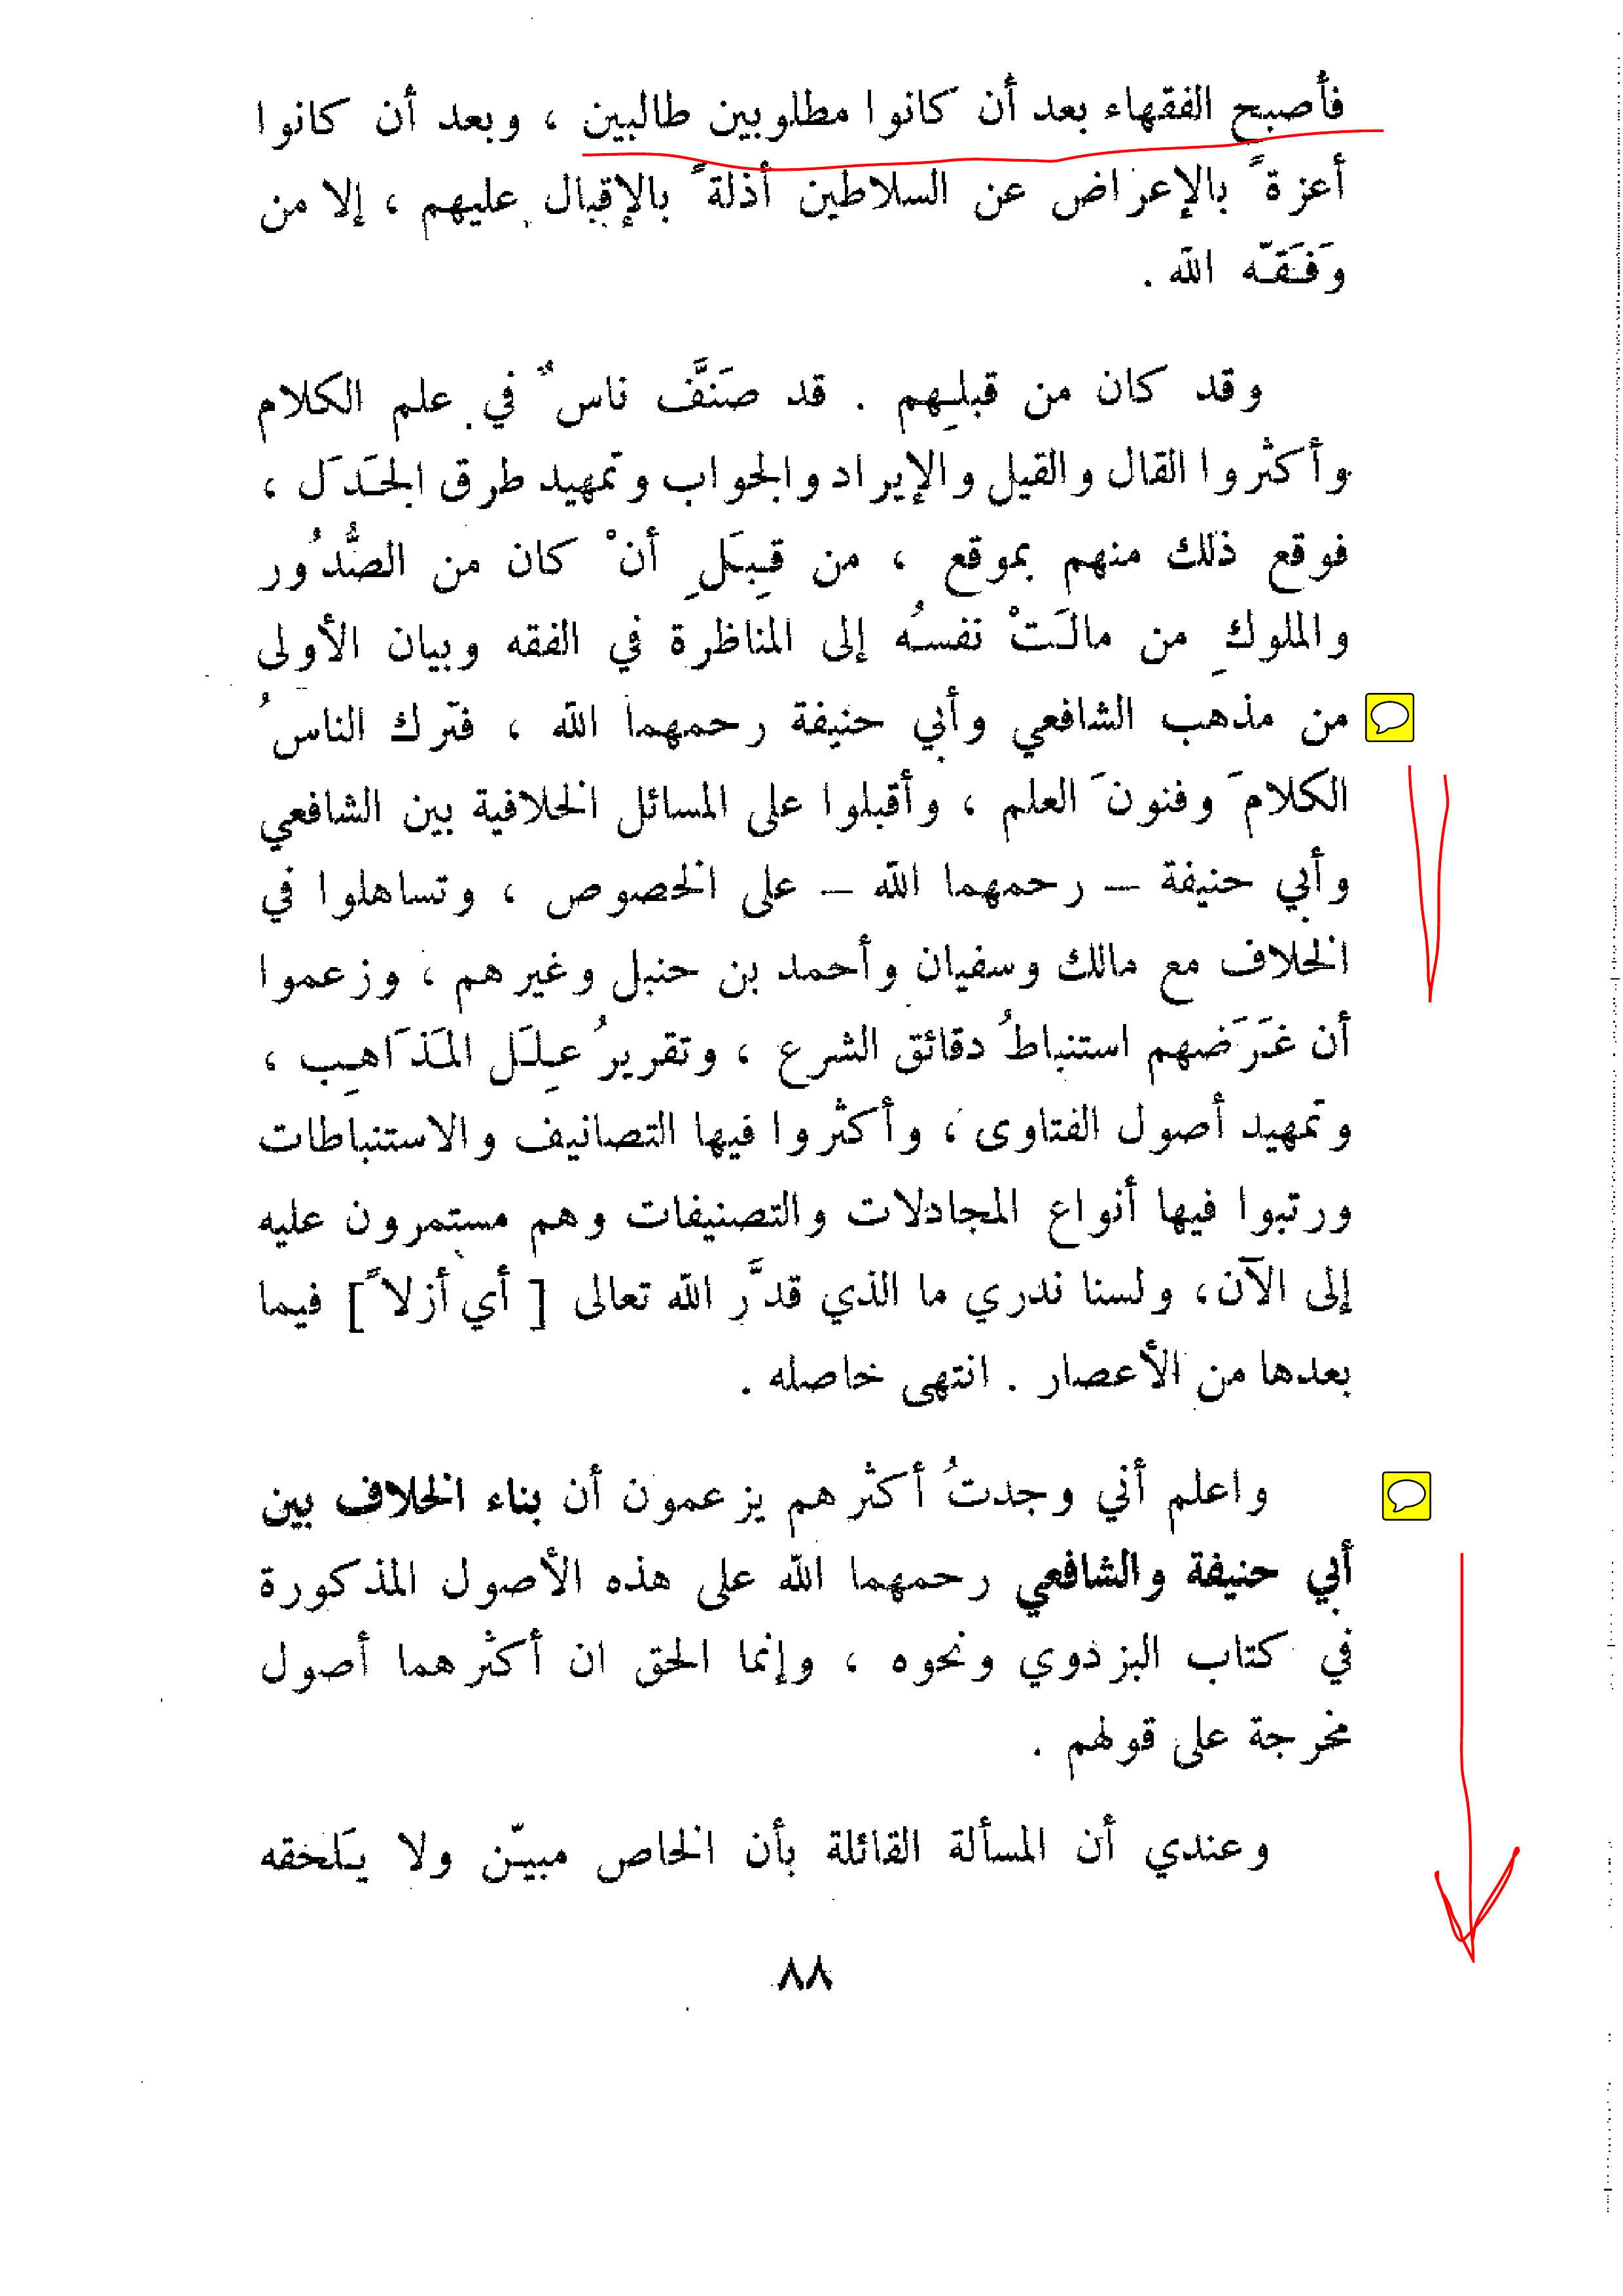 فأصبح الفقهاء بعد أن كانوا مطلوبين طالبين ، وبعد أن كانوا
أعزةً بالإعراض عن السلاطين أذلةً بالإقبال عليهم ، إلا من
وَفَقّه الله .
وقد كان من قبلِهم . قد صَنَّف ناسٌ في علم الكلام
وأكثروا القال والقيل والإيراد والجواب وتمهيد طرق الجَدَل ،
فوقع ذلك منهم بموقع ، من قِبَلِ أنْ كان من الصُّدُور
والملوكِ من مالَتْ نفسُه إلى المناظرة في الفقه وبيان الأولى
من مذهب الشافعي وأبي حنيفة رحمهما الله ، فترك الناسُ
الكلامَ وفنونَ العلم ، وأقبلوا على المسائل الخلافية بين الشافعي
وأبي حنيفة – رحمهما الله – على الخصوص ، وتساهلوا في
الخلاف مع مالك وسفيان وأحمد بن حنبل وغيرهم ، وزعموا
أن غَرَضهم استنباطُ دقائق الشرع ، وتقريرُ عِلَل المَذَاهِب ،
وتمهيد أصول الفتاوى ، وأكثروا فيها التصانيف والاستنباطات
ورتبوا فيها أنواع المجادلات والتصنيفات وهم مستمرون عليه
إلى الآن ، ولسنا ندري ما الذي قدَّر الله تعالى [ أي أزلاً ] فيما
بعدها من الأعصار . انتهى حاصله .
واعلم أني وجدتُ أكثرهم يزعمون أن بناء الخلاف بين
أبي حنيفة والشافعي رحمهما الله على هذه الأصول المذكورة
في كتاب البزدوي ونحوه ، وإنما الحق ان أكثرهما أصول
مخرجة على قولهم .
وعندي أن المسألة القائلة بأن الخاص مبيّن ولا يَلحقه
٨٨